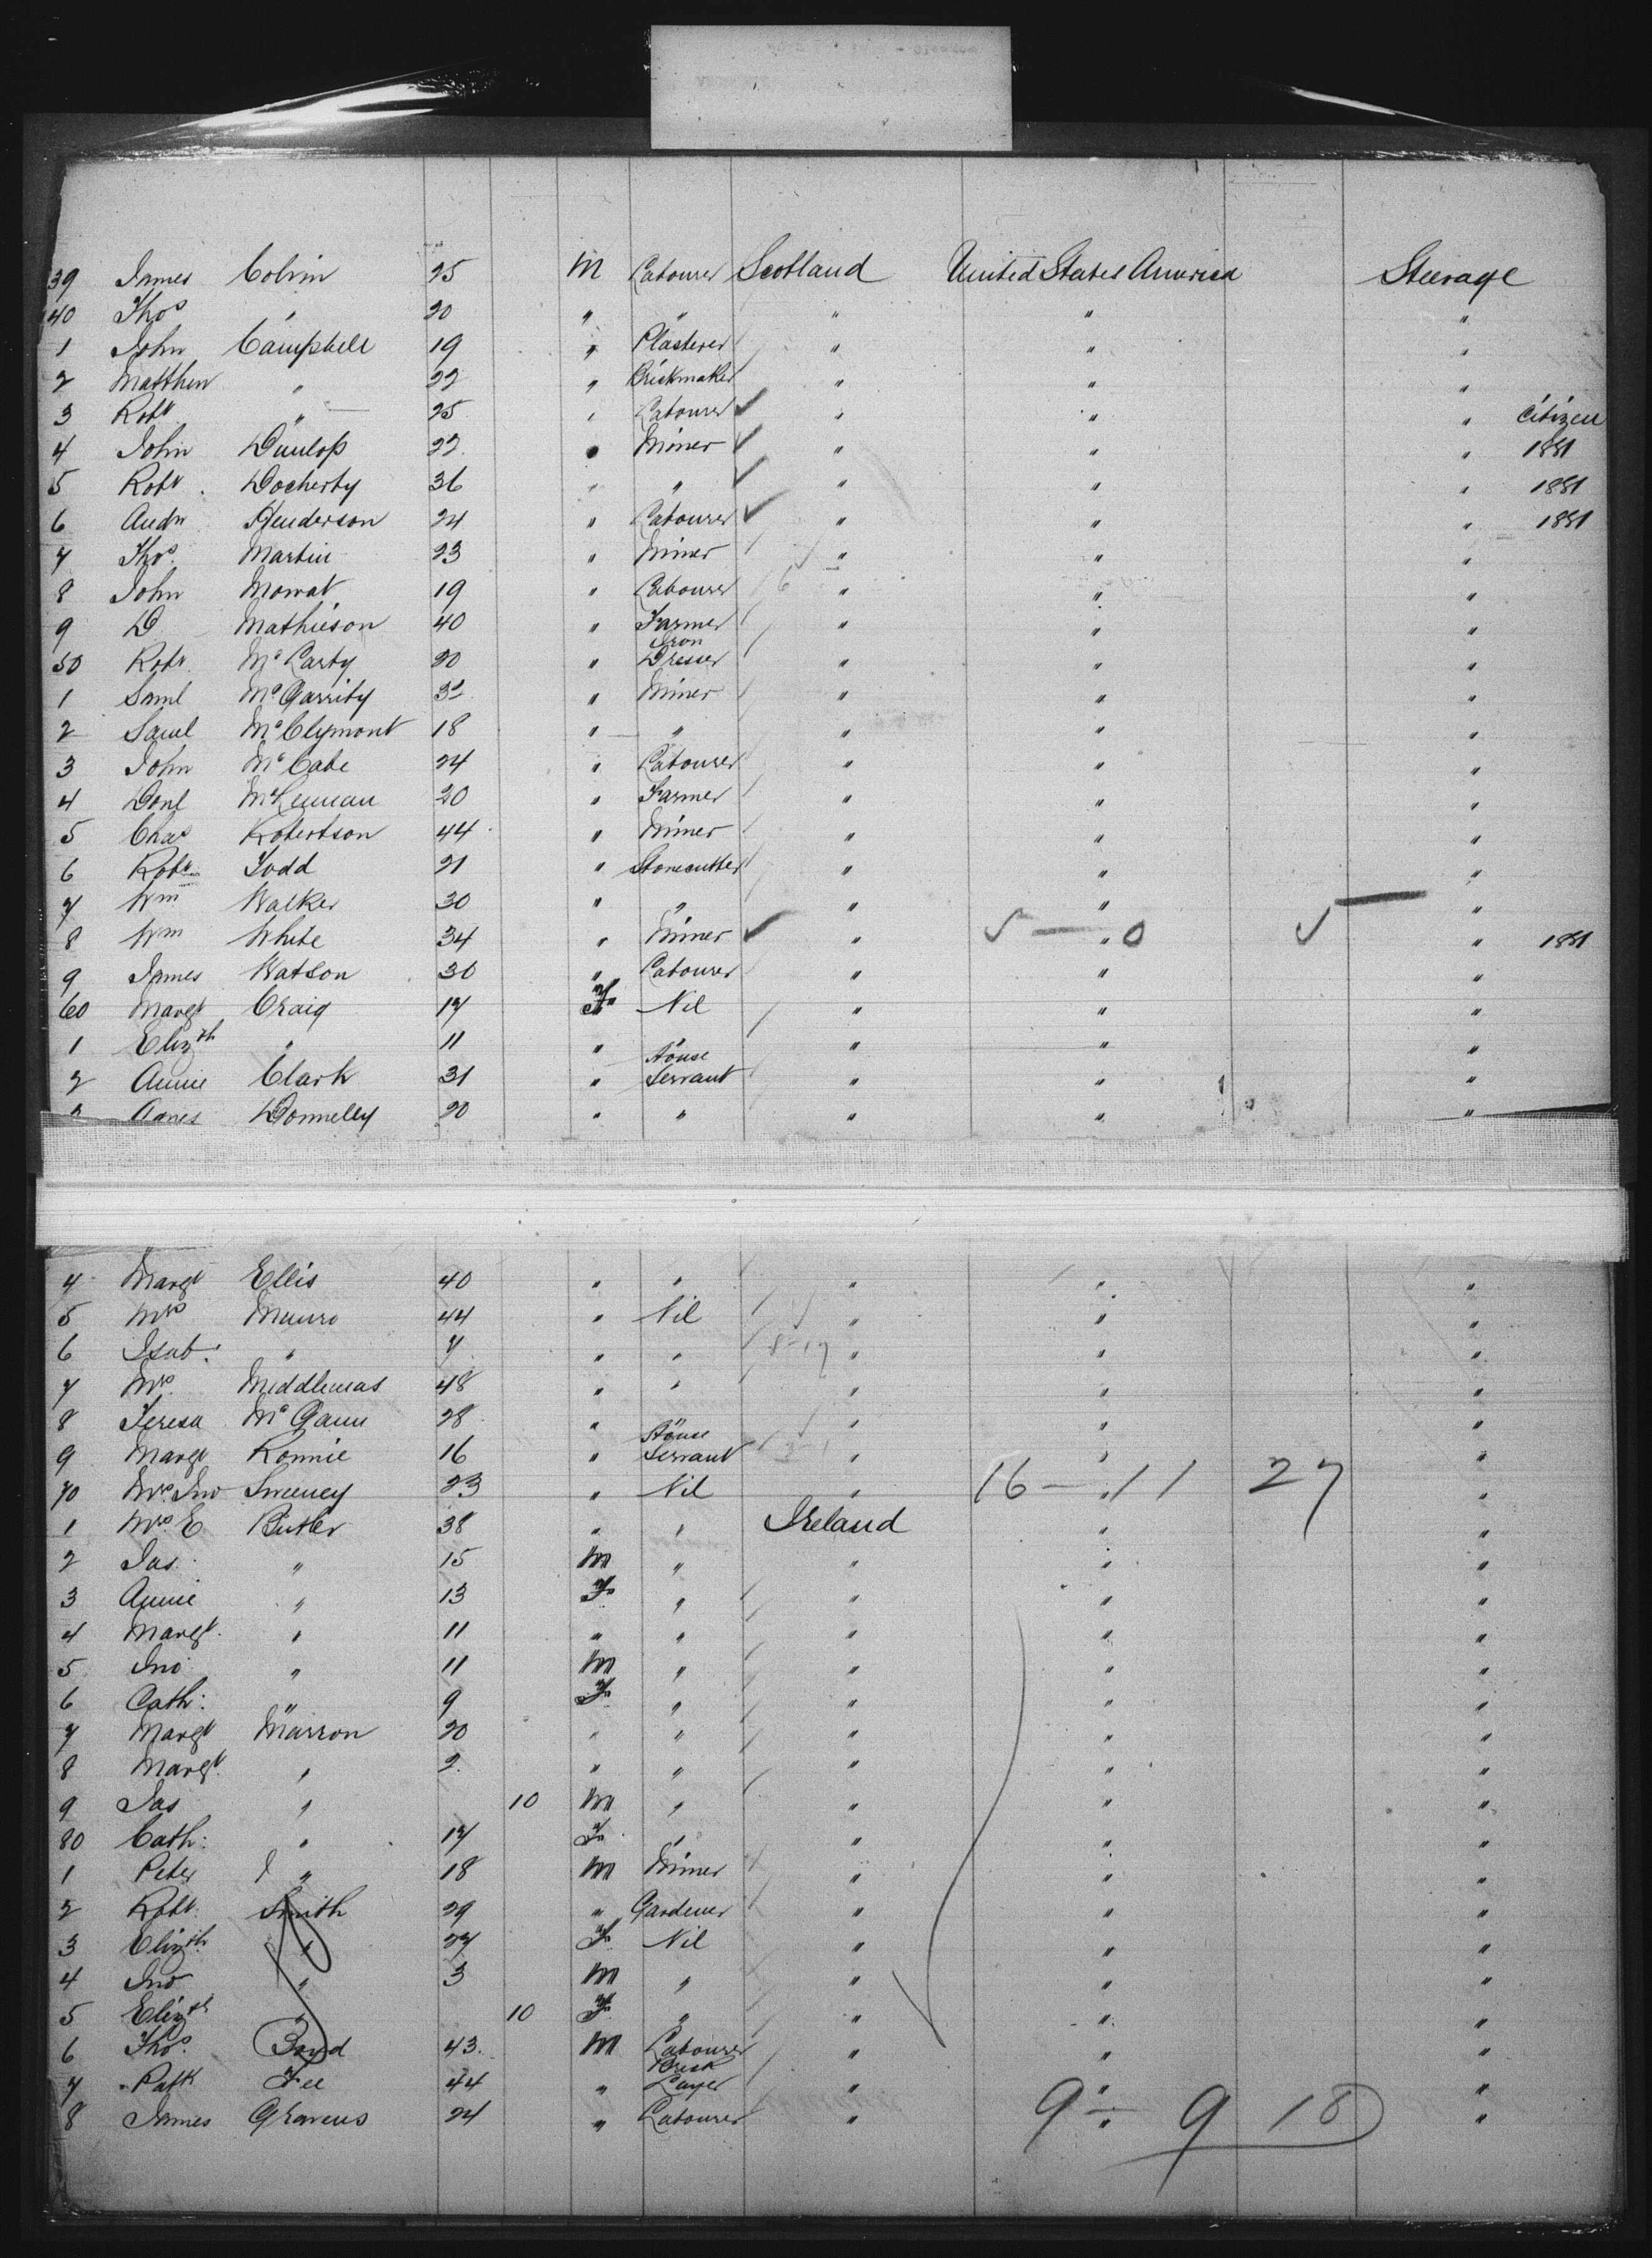 39 James Colvin 25 M Labourer Scotland United States America Steerage
40 Thos " 20 " " " " "
1 John Campbell 19 " Plasterer " " "
2 Matthew " 22 " Brickmaker " " "
3 Robt " 25 " Labourer " " " Citizen
4 John Dunlop 22 " Miner " " " 1881
5 Robt Docherty 36 " " " " " 1881
6 Andw Henderson 24 " Labourer " " " 1881
7 Thos Martin 23 " Miner " " "
8 John Mowat 19 " Labourer " " "
9 D Mathieson 40 " Farmer " " "
50 Robt McCarty 20 " Iron Dresser " " "
1 Saml McGarrity " Miner " " "
2 Saml McClymont 18 " " " " "
3 John McCabe 24 " Labourer " " "
4 Donl McLennan 20 " Farmer " " "
5 Chas Robertson 44 " Miner " " "
6 Robt Todd 21 " Stonecutter " " "
7 Wm Walker 30 " " " " "
8 Wm White 34 " Miner " " " 1881
9 James Watson 30 " Labourer " " "
60 Margt Craig 17 F Nil " " "
1 Elizth " 11 " " " " "
2 Annie Clark 31 " House Servant " " "
3 Agnes Donnelly 20 " " " " "
4 Margt Ellis 40 " " " " "
5 Mrs Munro 44 " Nil " " "
6 Isab: " 7 " " " " "
7 Mrs Middlemas 48 " " " " "
8 Teresa McGann 28 " " " "
9 Margt Rennie 16 " House Servant " " "
70 Mrs Jno Sweeney 23 " Nil " 16 — 11 27 "
1 Mrs E Butler 38 " " Ireland " "
2 Jas " 15 M " " " "
3 Annie " 13 F " " " "
4 Margt " 11 " " " " "
5 Jno " 11 M " " " "
6 Cath: " 9 F " " " "
7 Margt Marron 20 " " " " "
8 Margt " 2 " " " " "
9 Jas " 10 M " " " "
80 Cath: " 17 F " " " "
1 Peter " 18 M Miner " " "
2 Robt Smith 29 " Gardener " " "
3 Elizth " 27 F Nil " " "
4 Jno " 3 M " " " "
5 Elizth " 10 F " " " "
6 Thos Boyd 43 M Labourer " " "
7 Patk Fee 44 " Brick Layer " " "
8 James Gravens 24 " Labourer " 9 — 9 18 "